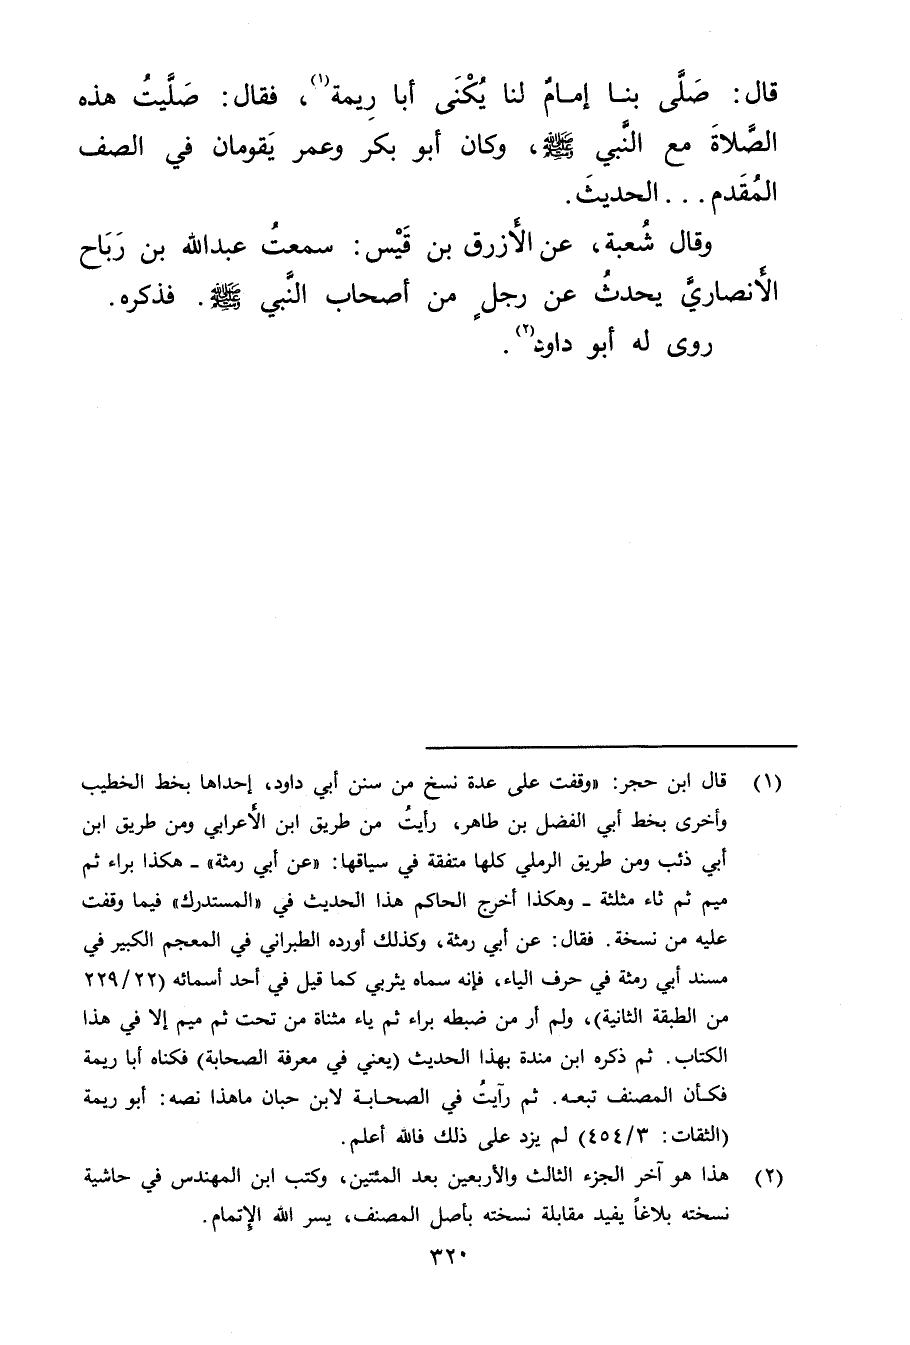 قال: صَلَّى بنـا إمـامٌ لنا يُكْنَى أبا رِيمة(١)، فقال: صَلَّيتُ هذه
الصَّلاةَ مع النَّبي ﷺ، وكان أبو بكر وعمر يَقومان في الصف
المُقَدم. . . الحديثَ.
وقال شُعبة، عن الأَزرق بن قَيْس: سمعتُ عبدالله بن رَبَاح
الأَنصاريَّ يحدثُ عن رجلٍ من أصحاب النَّبي ﷺ. فذكره.
روى له أبو داود(٢).
(١) قال ابن حجر: «وقفت على عدة نسخ من سنن أبي داود، إحداها بخط الخطيب
وأخرى بخط أبي الفضل بن طاهر، رأيتُ من طريق ابن الأَعرابي ومن طريق ابن
أبي ذئب ومن طريق الرملي كلها متفقة في سياقها: «عن أبي رمثة» ـ هكذا براء ثم
ميم ثم ثاء مثلثة ـ وهكذا أخرج الحاكم هذا الحديث في «المستدرك» فيما وقفت
عليه من نسخة. فقال: عن أبي رمثة، وكذلك أورده الطبراني في المعجم الكبير في
مسند أبي رمثة في حرف الياء، فإنه سماه يثربي كما قيل في أحد أسمائه (٢٢٩/٢٢
من الطبقة الثانية)، ولم أر من ضبطه براء ثم ياء مثناة من تحت ثم ميم إلا في هذا
الكتاب. ثم ذكره ابن مندة بهذا الحديث (يعني في معرفة الصحابة) فكناه أبا ريمة
فكـأن المصنف تبعـه. ثم رأيتُ في الصحـابـة لابن حبان ماهذا نصه: أبو ريمة
(الثقات: ٤٥٤/٣) لم يزد على ذلك فالله أعلم.
(٢) هذا هو آخر الجزء الثالث والأربعين بعد المئتين، وكتب ابن المهندس في حاشية
نسخته بلاغاً يفيد مقابلة نسخته بأصل المصنف، يسر الله الإتمام.
٣٢٠